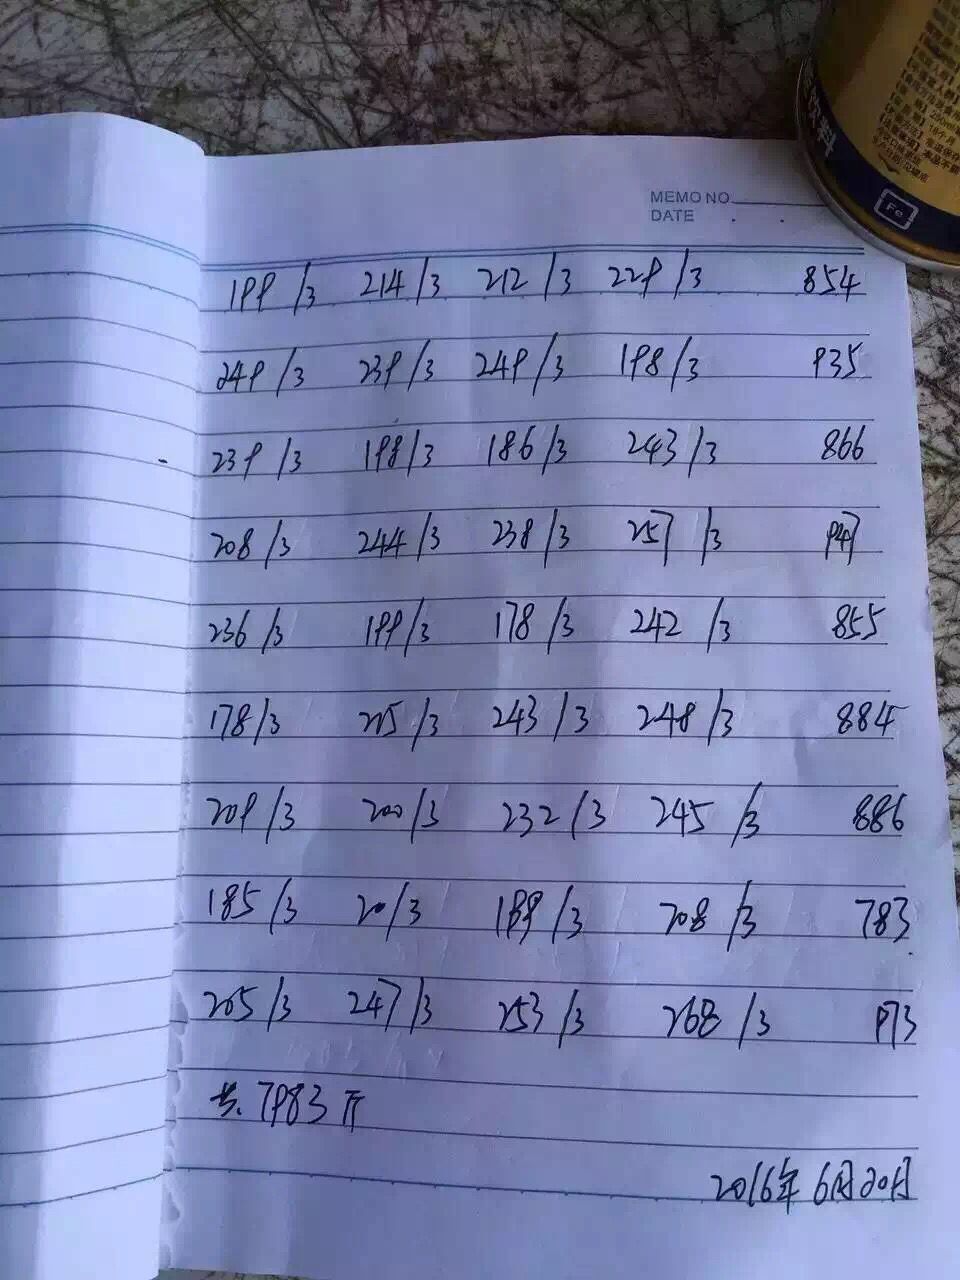 MEMO NO
DATE
199/3 214/3 212/3 229/3 854
249/3 239/3 249/3 198/3 935
239/3 198/3 186/3 243/3 866
208/3 244/3 238/3 257/3 947
236/3 199/3 178/3 242/3 855
178/3 215/3 243/3 248/3 884
209/3 200/3 232/3 245/3 886
185/3 201/3 189/3 208/3 783
205/3 247/3 253/3 268/3 973
共.7983斤
2016年6月20日
饮料
Fe